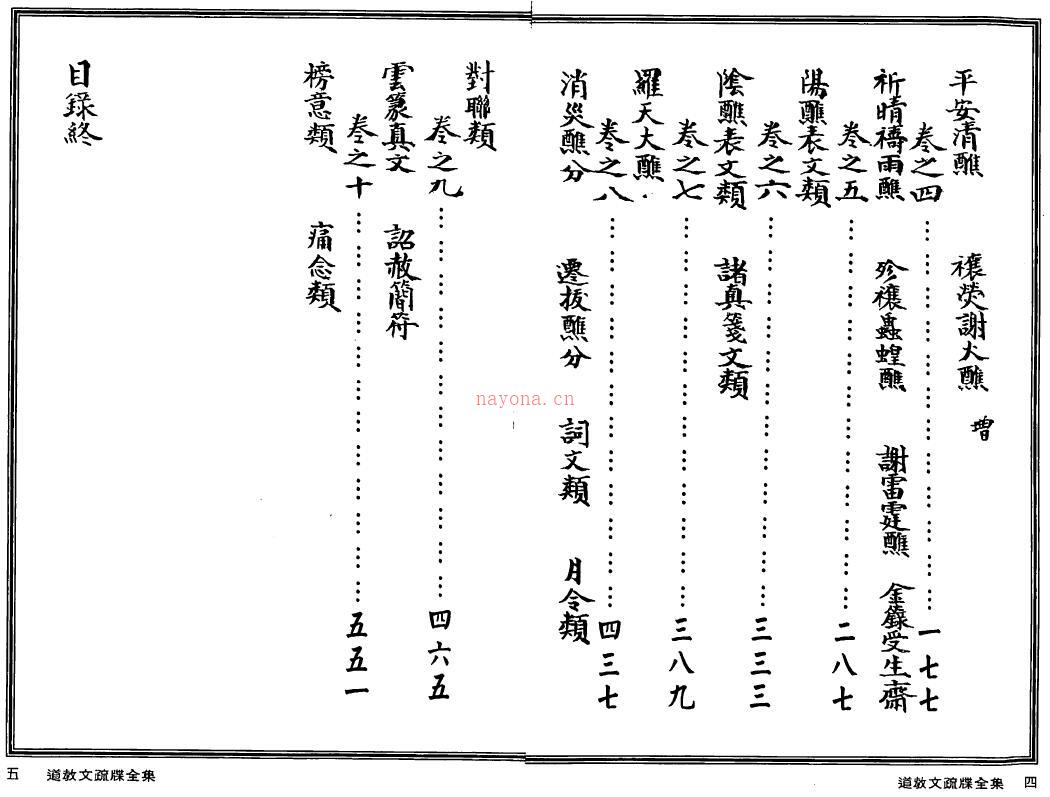 平安清醮 禳熒謝火醮 增
卷之四……一七七
祈晴禱雨醮 殄禳蟲蝗醮 謝雷霆醮 金籙受生齋
卷之五……二八七
陽醮表文類
卷之六……三三三
陰醮表文類 諸真箋文類
卷之七……三八九
羅天大醮
卷之八……四三七
消災醮分 遷拔醮分 詞文類 月令類
對聯類
卷之九……四六五
雲篆真文 詔赦簡符
卷之十……五五一
榜意類 痛念類
目錄終
nayona.cn
道教文疏牒全集 四
五 道教文疏牒全集